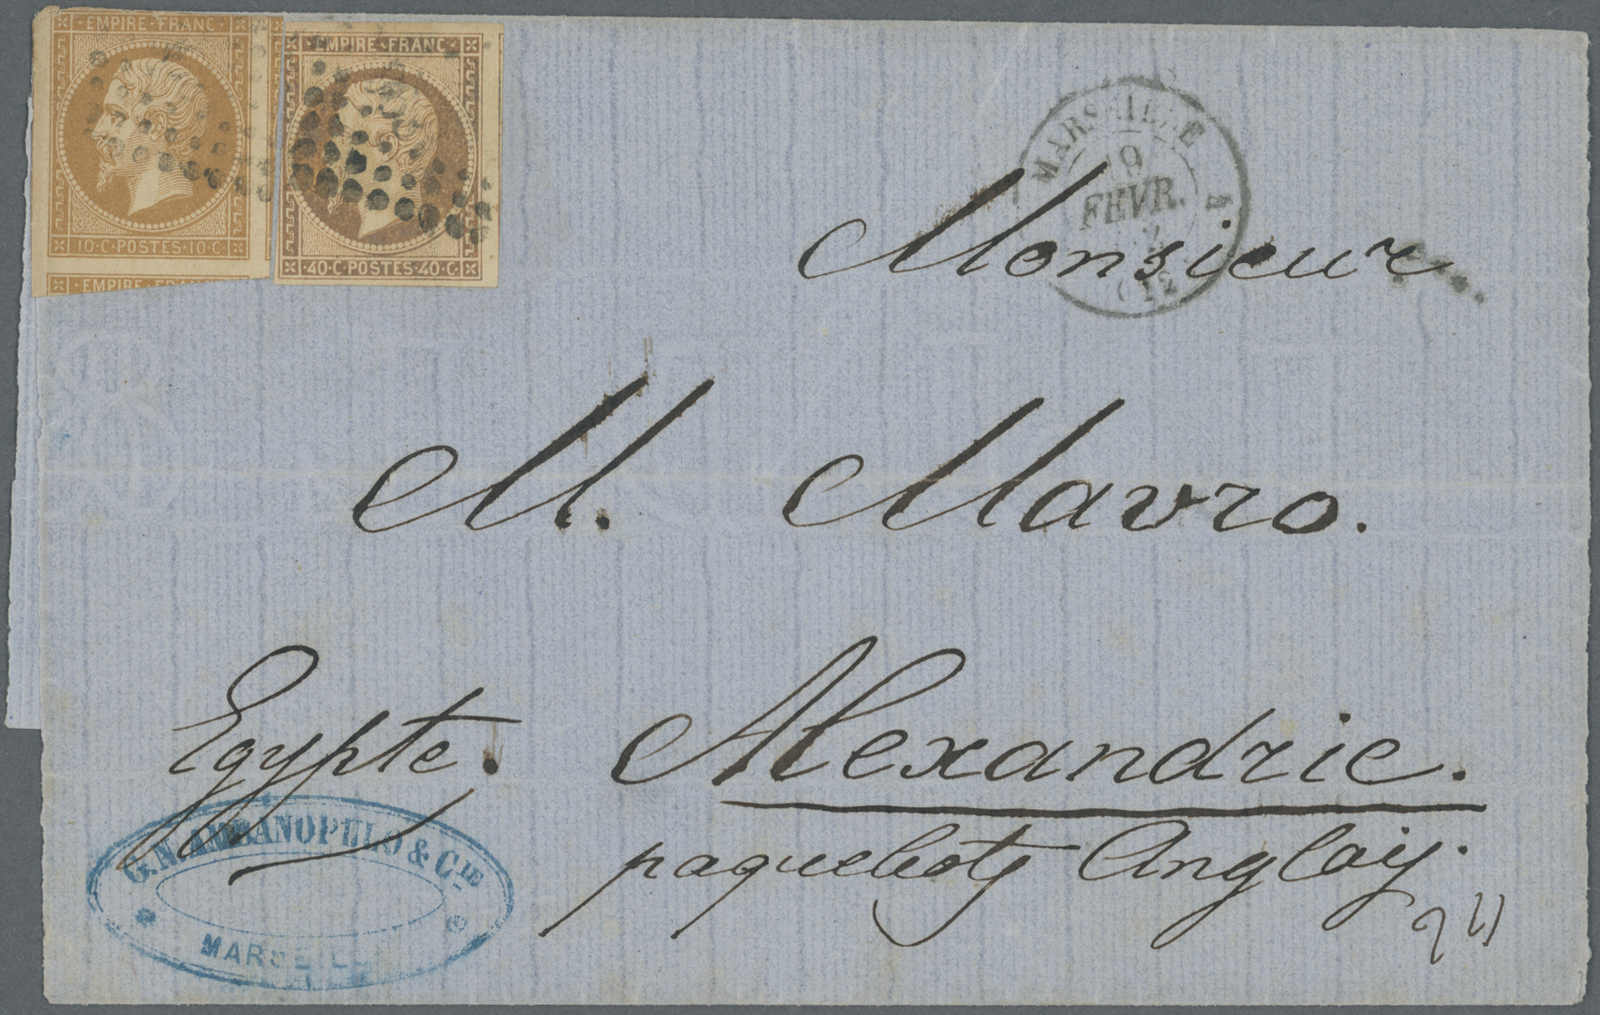 EMPIRE·FRANC·
10·C·POSTES·10·C·
EMPIRE·FRANC
EMPIRE·FRANC·
40·C·POSTES·40·C·
MARSEILLE
FEVR.
(12
Monsieur
M. Mavro.
Egypte.
Alexandrie.
paquebots Anglais.
& CIE
MARSEILL